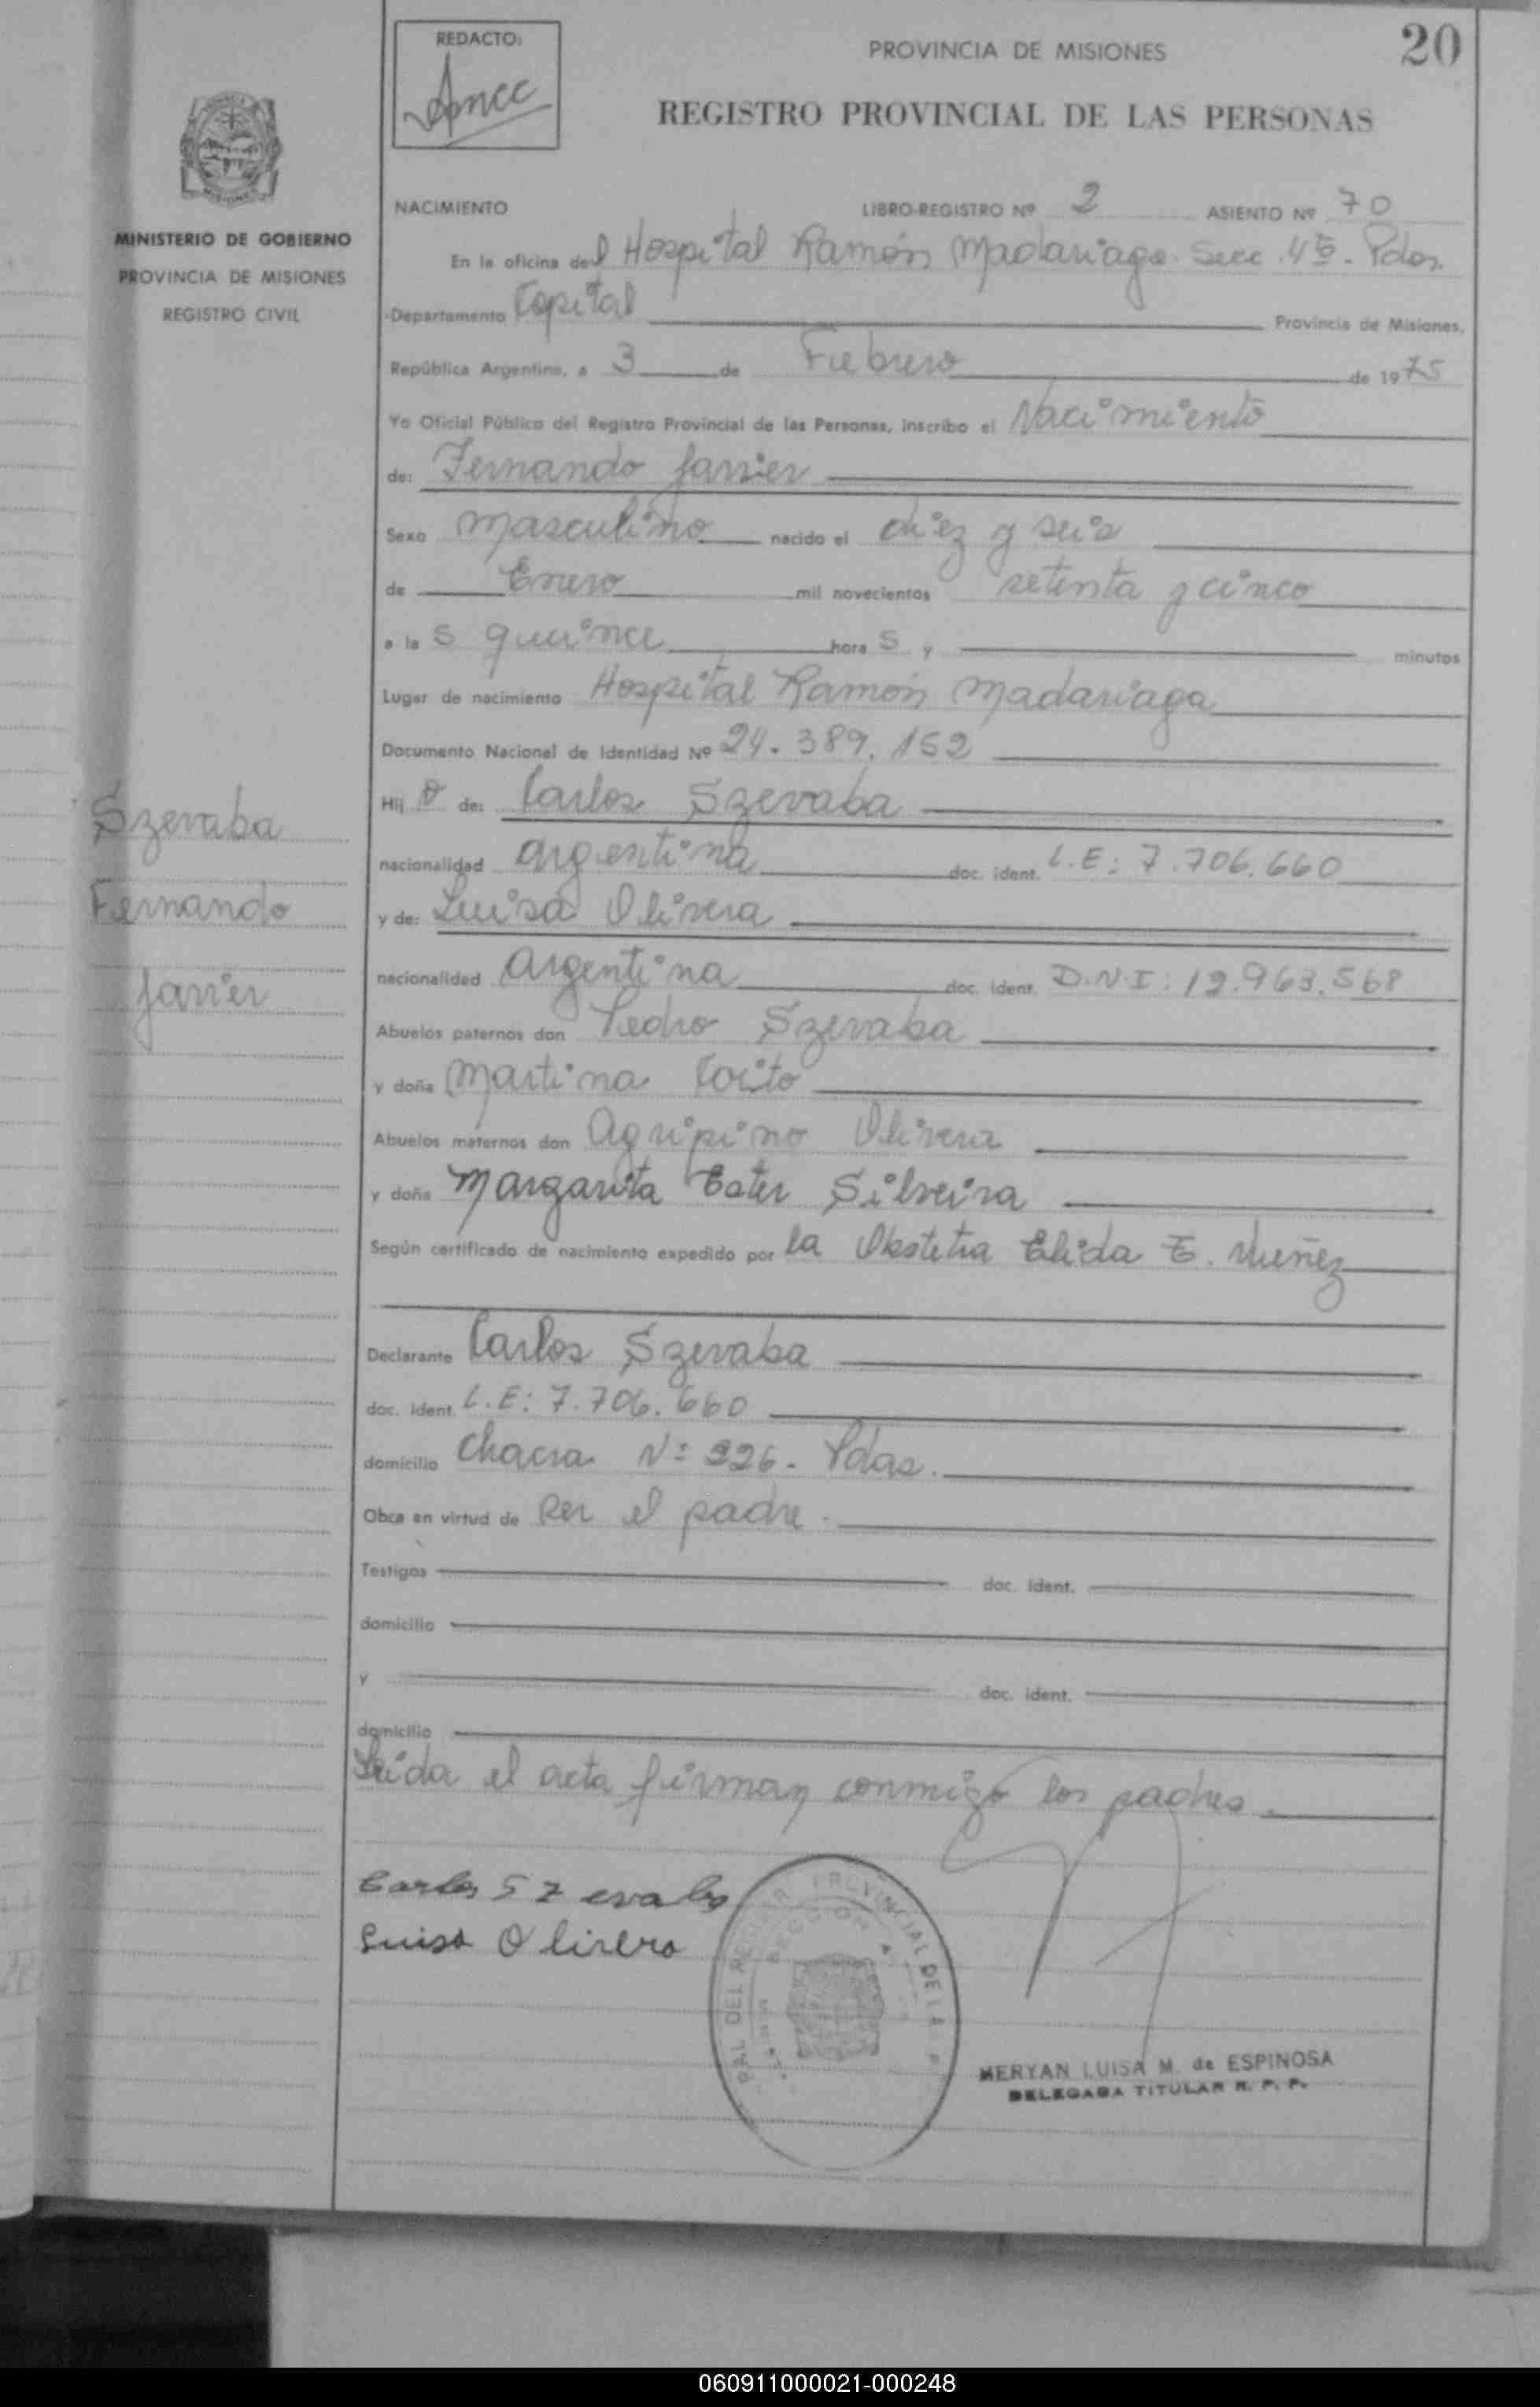 REDACTO:
PROVINCIA DE MISIONES
20
REGISTRO PROVINCIAL DE LAS PERSONAS
MISIONES
MINISTERIO DE GOBIERNO
PROVINCIA DE MISIONES
REGISTRO CIVIL
NACIMIENTO LIBRO-REGISTRO Nº 2 ASIENTO Nº 70
En la oficina del Hospital Ramón Madariaga. Secc. 4ta. Pdas.
Departamento Capital Provincia de Misiones,
República Argentina, a 3 de Febrero de 1975
Yo Oficial Público del Registro Provincial de las Personas, inscribo el Nacimiento
de: Fernando Javier
Sexo masculino nacido el diez y seis
de Enero mil novecientos setenta y cinco
a las quince horas y minutos
Lugar de nacimiento Hospital Ramón Madariaga
Documento Nacional de Identidad Nº 24.389.152
Hijo de: Carlos Szevaba
nacionalidad argentina doc. ident. L.E: 7.706.660
y de: Luisa Olivera
nacionalidad argentina doc. ident. D.N.I: 12.963.568
Abuelos paternos don Pedro Szevaba
y doña Martina
Abuelos maternos don Agripino Olivera
y doña Margarita Ester Silveira
Según certificado de nacimiento expedido por la Obstetra Elida E. Nuñez
Declarante Carlos Szevaba
doc. ident. L.E: 7.706.660
domicilio Chacra Nº 226. Pdas.
Obra en virtud de ser el padre.
Testigos doc. ident.
domicilio
y doc. ident.
domicilio
Leida el acta firman conmigo los padres.
Szevaba
Fernando
Javier
Carlos Szevaba
Luisa Olivera
MERYAN LUISA M. de ESPINOSA
DELEGADA TITULAR R. P. P.
060911000021-000248